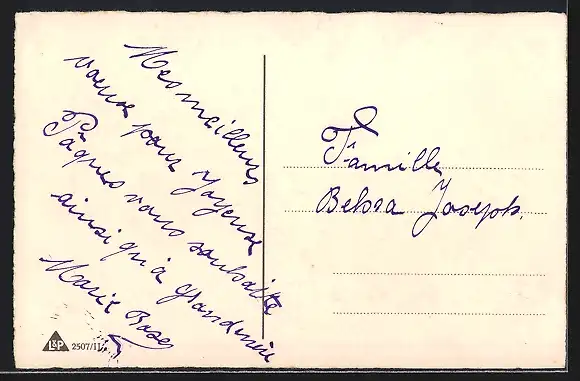 Mes meilleurs
voeux pour Joyeuse
Pâques vous souhaite
ainsi qu'à Grandmère
Marie Rose
Famille
Beksa Joseph.
L&P 2507/II